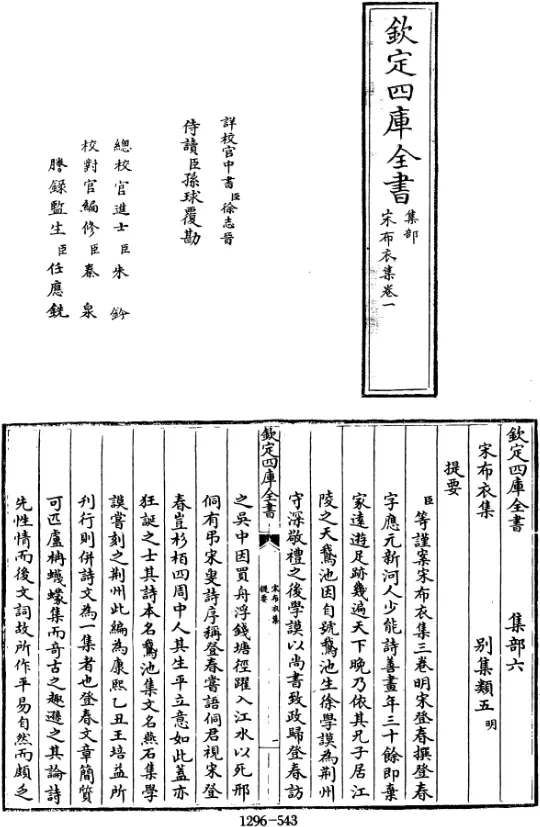 欽定四庫全書
集部
宋布衣集卷一
詳校官中書臣徐志晉
侍讀臣孫球覆勘
總校官進士臣朱鈐
校對官編修臣秦泉
謄錄監生臣任應銑
欽定四庫全書 集部六
宋布衣集 別集類五明
提要
臣等謹案宋布衣集三卷明宋登春撰登春
字應元新河人少能詩善畫年三十餘即棄
家遠遊足跡幾遍天下晚乃依其兄子居江
陵之天鵞池因自號鵞池生徐學謨為荆州
守深敬禮之後學謨以尚書致政歸登春訪
欽定四庫全書
宋布衣集
提要
一
之吳中因買舟浮錢塘徑躍入江水以死邢
侗有弔宋叟詩序稱登春嘗語侗君視宋登
春豈杉栢四周中人其生平立意如此蓋亦
狂誕之士其詩本名鵞池集文名燕石集學
謨嘗刻之荆州此編為康熙乙丑王培益所
刊行則併詩文為一集者也登春文章簡質
可匹盧柟蠛蠓集而奇古之趣遜之其論詩
先性情而後文詞故所作平易自然而頗乏
1296-543